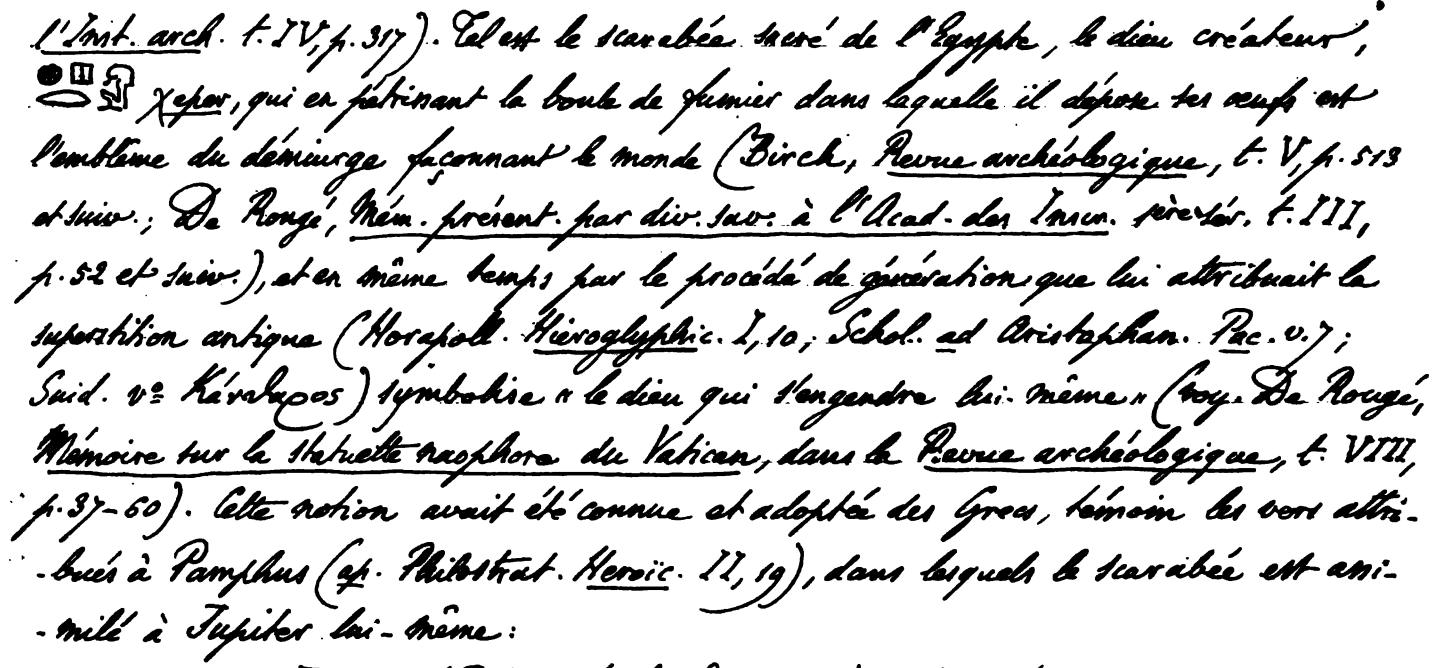 l'Inst. arch. t. IV, p. 317). Tel est le scarabée sacré de l'Egypte, le dieu créateur,
χeper, qui en pétrissant la boule de fumier dans laquelle il dépose ses œufs est
l'emblême du démiurge façonnant le monde (Birch, Revue archéologique, t. V, p. 513
et suiv.; De Rougé, Mém. présent. par div. sav. à l'Acad. des Inscr. 1ère sér. t. III,
p. 52 et suiv.), et en même temps par le procédé de génération que lui attribuait la
superstition antique (Horapoll. Hieroglyphic. I, 10; Schol. ad Aristophan. Pac. v. 7;
Suid. vº Κάνθαρος) symbolise « le dieu qui s'engendre lui-même » (voy. De Rougé,
Mémoire sur la statuette naophore du Vatican, dans la Revue archéologique, t. VIII,
p. 37-60). Cette notion avait été connue et adoptée des Grecs, témoin les vers attri-
-bués à Pamphus (ap. Philostrat. Heroïc. II, 19), dans lesquels le scarabée est assi-
-milé à Jupiter lui-même: